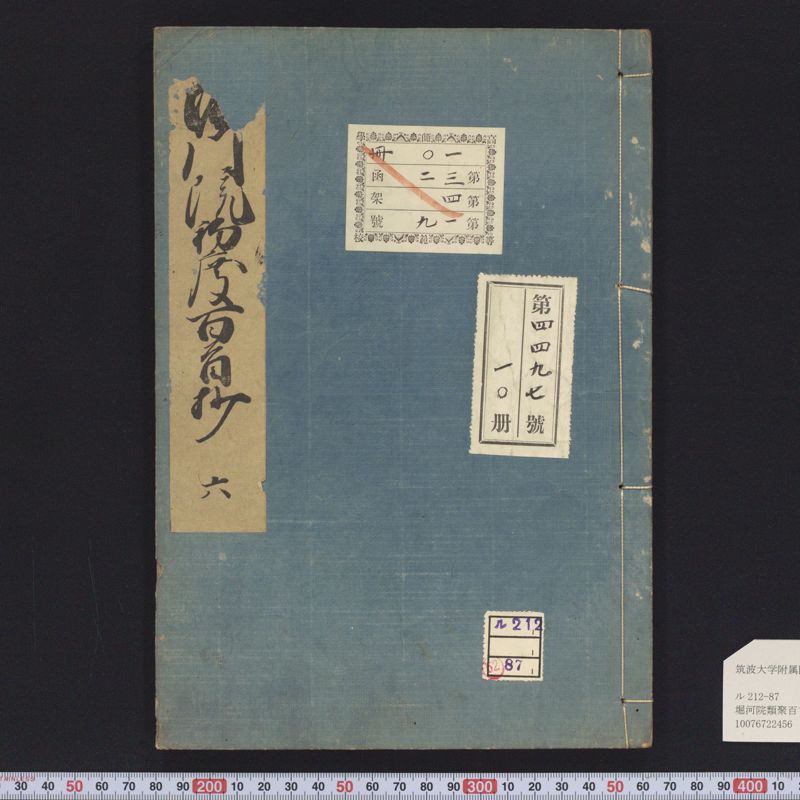 川院初度百首抄
六
高等師範學校
第一三四〇二函
第四架
第一九號
冊
第四四九七號
一〇册
ル212
87
筑波大学附属
ル 212-87
堀河院類聚百
10076722456
STAINLESS
30 40 50 60 70 80 90 200 10 20 30 40 50 60 70 80 90 300 10 20 30 40 50 60 70 80 90 400 10